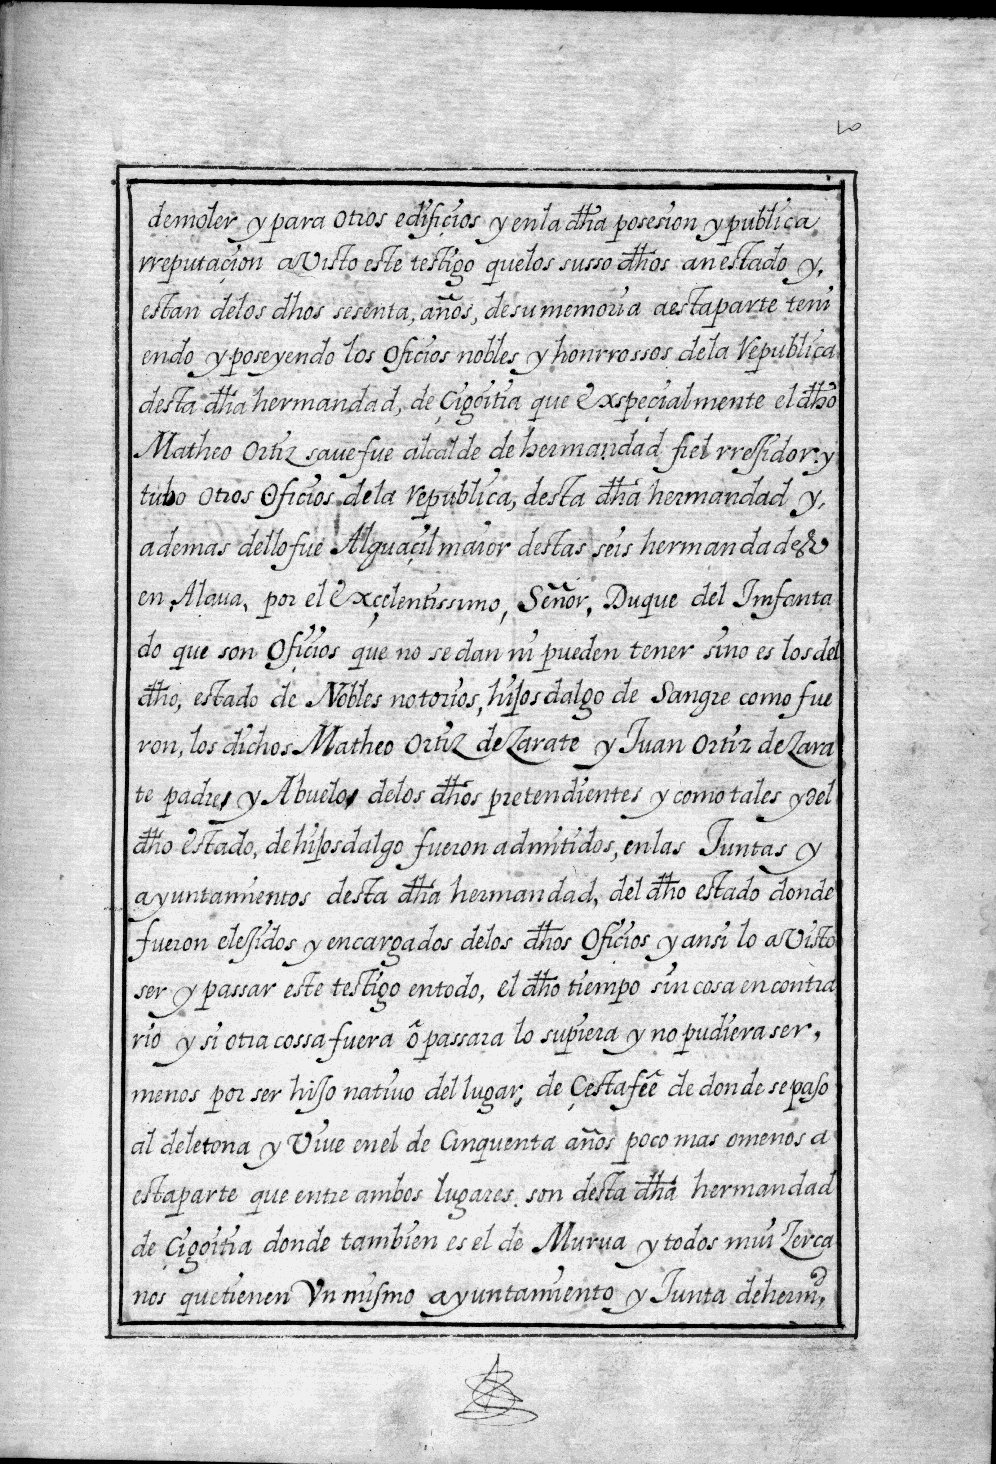 10
demoler y para otros edificios y en la dha posesion y publica
rreputaçion a visto este testigo quelos susso dhos an estado y,
estan delos dhos sesenta, años, de su memoria a esta parte teni
endo y poseyendo los oficios nobles y honrrossos de la Republica
desta dha hermandad, de Çigoitia que Exspeçialmente el dho
Matheo Ortiz save fue alcalde de hermandad fiel rresidor y
tubo otros oficios de la republica, desta dha hermandad y,
ademas dello fue Alguaçil maior destas seis hermandades
en Alava, por el Exçelentissimo, Señor, Duque del Imfanta
do que son Oficios que no se dan ni pueden tener sino es los del
dho, estado de Nobles notorios, hijosdalgo de Sangre como fue
ron, los dichos Matheo Ortiz de Zarate y Juan Ortiz de Zara
te padres y Abuelos delos dhos pretendientes y como tales y del
dho Estado, de hijosdalgo fueron admitidos, en las Juntas y
ayuntamientos desta dha hermandad, del dho estado donde
fueron elesidos y encargados delos dhos Oficios y ansi lo a visto
ser y passar este testigo en todo, el dho tiempo sin cosa en contra
rio y si otra cossa fuera ô passara lo supiera y no pudiera ser,
menos por ser hijo nativo del lugar, de Çestafêe de donde se paso
al deletona y Vive en el de Cinquenta años poco mas o menos a
esta parte que entre ambos lugares son desta dha hermandad
de Çigoitia donde tambien es el de Murua y todos mui Zerca
nos que tienen Vn mismo ayuntamiento y Junta de hermd,